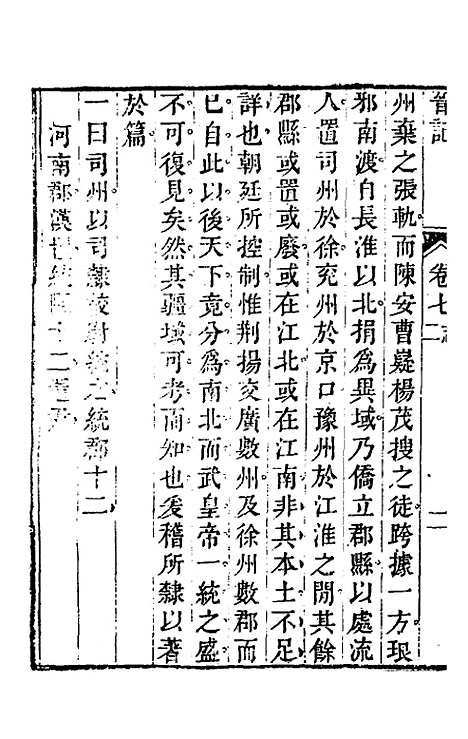 晉記
卷七
州棄之張軌而陳安曹嶷楊茂搜之徒跨據一方琅
邪南渡自長淮以北捐為異域乃僑立郡縣以處流
人置司州於徐兖州於京口豫州於江淮之閒其餘
郡縣或置或廢或在江北或在江南非其本土不足
詳也朝廷所控制惟荆揚交廣數州及徐州數郡而
已自此以後天下竟分爲南北而武皇帝一統之盛
不可復見矣然其疆域可考而知也爰稽所隸以著
於篇
一曰司州以司隸校尉統之統郡十二
河南郡漢統十二